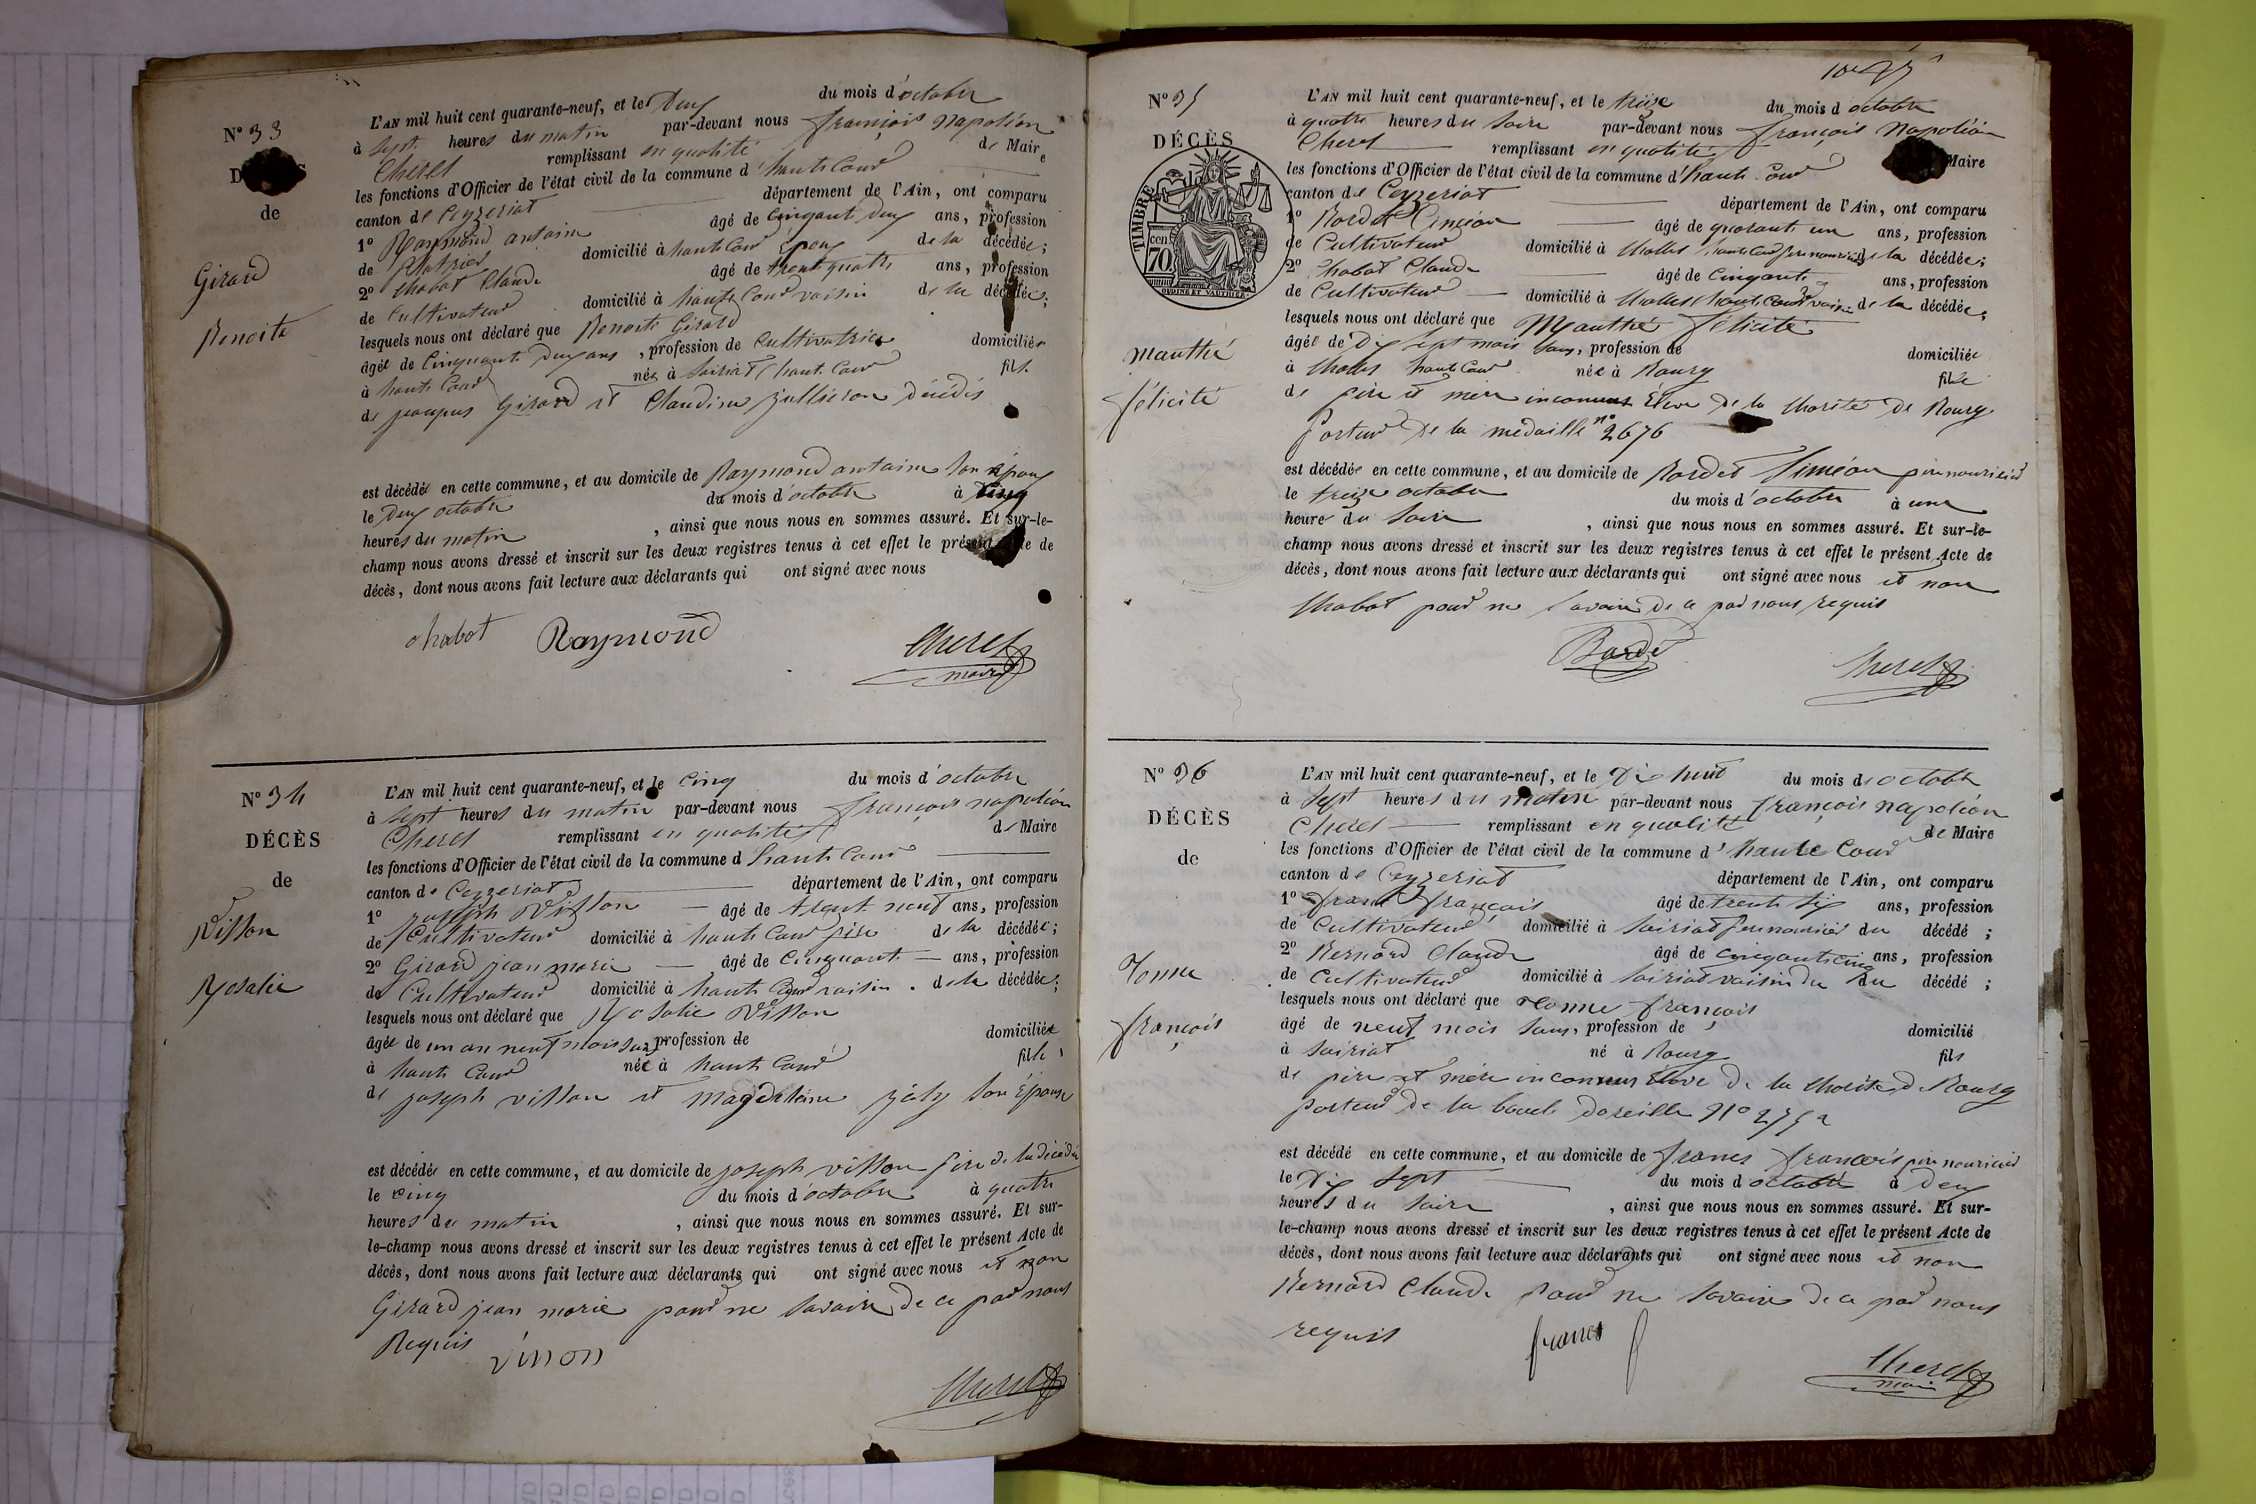 N° 33
DÉCÈS
de
Girard
Benoite
L'AN mil huit cent quarante-neuf, et le Deux du mois d'octobre
à sept heures du matin par-devant nous françois napoléon
Cheret remplissant en qualité de Maire
les fonctions d'Officier de l'état civil de la commune d'haute Cour
canton de Ceyzeriat département de l'Ain, ont comparu
1° Raymond antoine âgé de cinqante deux ans, profession
de platrier domicilié à haute Cour Époux de la décédée;
2° Chabot Claude âgé de trente quatre ans, profession
de Cultivateur domicilié à haute Cour voisin de la décédée;
lesquels nous ont déclaré que Benoite Girard
âgée de Cinquante Deux ans, profession de Cultivatrice domiciliée
à haute Cour née à Soiriat haute Cour fille
de Girard et Claudine décédés
est décédée en cette commune, et au domicile de Raymond antoine son Époux
le Deux octobre du mois d'octobre à cinq
heures du matin, ainsi que nous nous en sommes assuré. Et sur-le-
champ nous avons dressé et inscrit sur les deux registres tenus à cet effet le présent Acte de
décès, dont nous avons fait lecture aux déclarants qui ont signé avec nous
chabot Raymond Cheret
maire
N° 34
DÉCÈS
de
Visson
Rosalie
L'AN mil huit cent quarante-neuf, et le Cinq du mois d'octobre
à sept heures du matin par-devant nous françois napoléon
Cheret remplissant en qualité de Maire
les fonctions d'Officier de l'état civil de la commune d haute Cour
canton de Ceyzeriat département de l'Ain, ont comparu
1° joseph Visson âgé de trente neuf ans, profession
de Cultivateur domicilié à haute Cour père de la décédée;
2° Girard jean marie âgé de Cinquante ans, profession
de Cultivateur domicilié à haute Cour voisin de la décédée;
lesquels nous ont déclaré que Rosalie Visson
âgée de un an neuf mois sans profession de domiciliée
à haute Cour née à haute Cour fille
de joseph visson et Magdeleine joly son Épouse
est décédée en cette commune, et au domicile de joseph visson père de la décédée
le cinq du mois d'octobre à quatre
heures du matin, ainsi que nous nous en sommes assuré. Et sur-
le-champ nous avons dressé et inscrit sur les deux registres tenus à cet effet le présent Acte de
décès, dont nous avons fait lecture aux déclarants qui ont signé avec nous et non
Girard jean marie pour ne savoir de ce par nous
Requis
vison
Cheret
N° 35
DÉCÈS
TIMBRE
cen
70
Manthé
félicité
L'AN mil huit cent quarante-neuf, et le treize du mois d octobre
à quatre heures du soire par-devant nous françois Napoléon
Cheret remplissant en qualité Maire
les fonctions d'Officier de l'état civil de la commune d'haute Cour
canton de Ceyzeriat département de l'Ain, ont comparu
1° Bordet âgé de quarant un ans, profession
de Cultivateur domicilié à haute Cour père nouricier de la décédée;
2° Chabot Claude âgé de Cinqante ans, profession
de Cultivateur domicilié à haute Cour voisin de la décédée;
lesquels nous ont déclaré que Manthé félicité
âgée de Dix sept mois sans, profession de domiciliée
à haute Cour née à Bourg fille
de père et mère inconnus Élève de la Charité de Bourg
porteur de la médaille n° 2676
est décédée en cette commune, et au domicile de Bordet Siméon père nouricier
le treize octobre du mois d'octobre à une
heure du soire, ainsi que nous nous en sommes assuré. Et sur-le-
champ nous avons dressé et inscrit sur les deux registres tenus à cet effet le présent Acte de
décès, dont nous avons fait lecture aux déclarants qui ont signé avec nous et non
Chabot pour ne savoir de ce par nous requis
Bordet
Cheret
N° 36
DÉCÈS
de
françois
L'AN mil huit cent quarante-neuf, et le Dix huit du mois d octobre
à sept heures du matin par-devant nous françois napoléon
Cheret remplissant en qualité de Maire
les fonctions d'Officier de l'état civil de la commune d'haute Cour
canton de Ceyzeriat département de l'Ain, ont comparu
1° franc françois âgé de trente six ans, profession
de Cultivateur domicilié à Soiriat père nouricier du décédé;
2° Bernard Claude âgé de cinqante cinq ans, profession
de Cultivateur domicilié à Soiriat voisin du du décédé;
lesquels nous ont déclaré que françois
âgé de neuf mois sans, profession de domicilié
à Soiriat né à Bourg fils
de père et mère inconnus Élève de la Charité de Bourg
porteur de la boucle doreille N° 2752
est décédé en cette commune, et au domicile de françois père nouricier
le Dix sept du mois d octobre à deux
heures du soire, ainsi que nous nous en sommes assuré. Et sur-
le-champ nous avons dressé et inscrit sur les deux registres tenus à cet effet le présent Acte de
décès, dont nous avons fait lecture aux déclarants qui ont signé avec nous et non
Bernard Claude pour ne savoir de ce par nous
requis
Cheret
maire